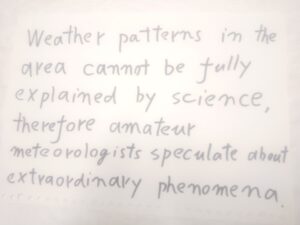 Weather patterns in the
area cannot be fully
explained by science,
therefore amateur
meteorologists speculate about
extraordinary phenomena.